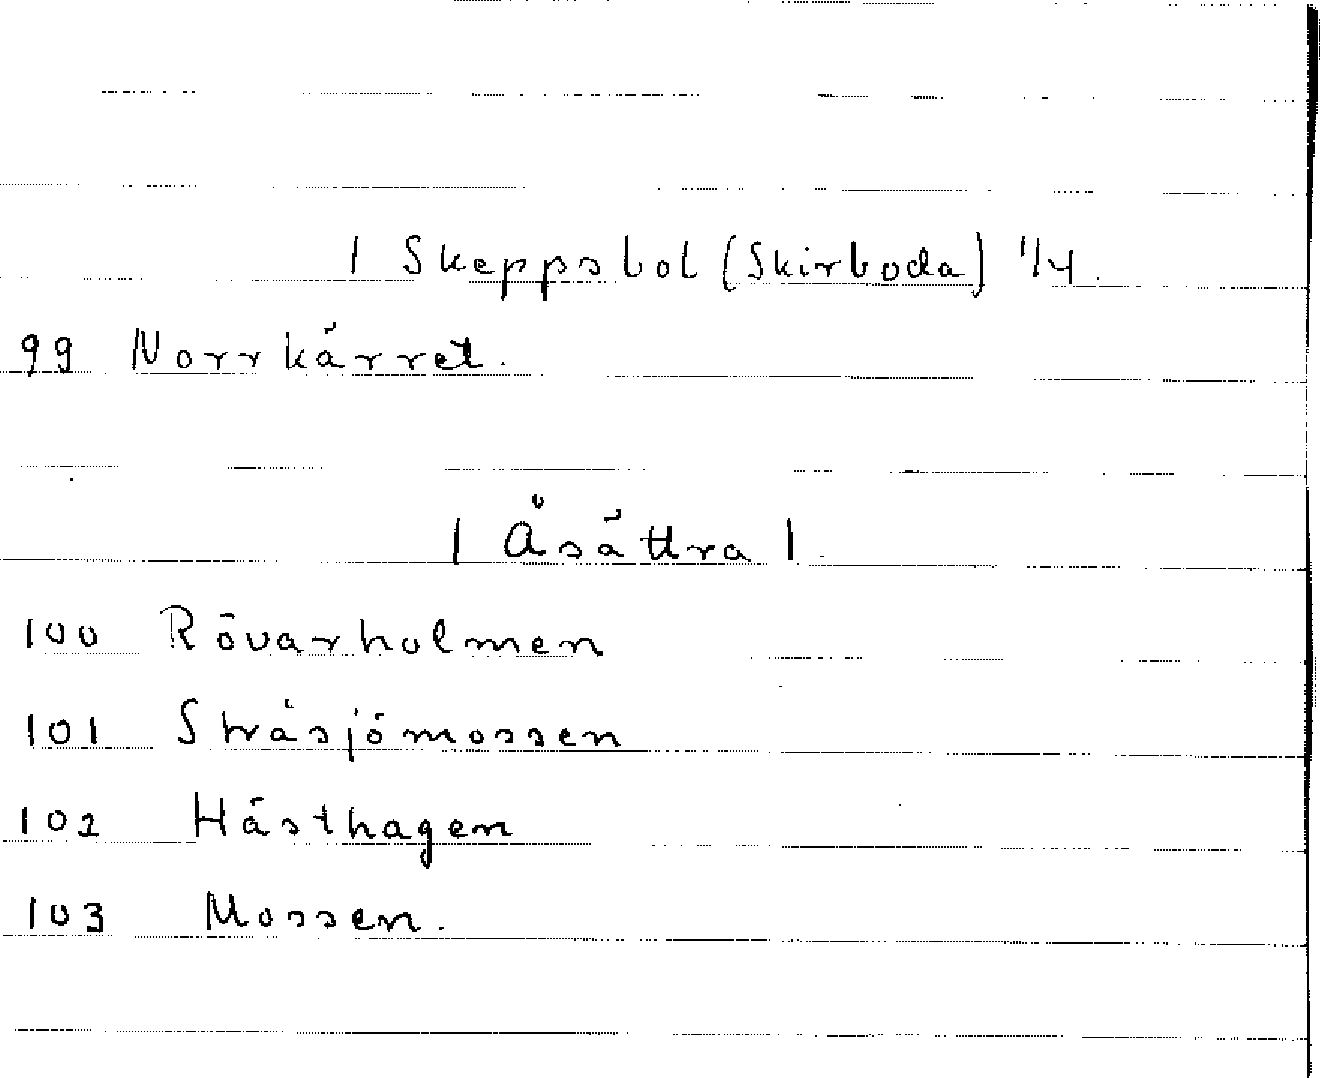 1 Skeppsbol (Skirboda) 1/4.
99 Norrkärret.
1 Åsättra 1.
100 Rövarholmen
101 Stråsjömossen
102 Hästhagen
103 Mossen.